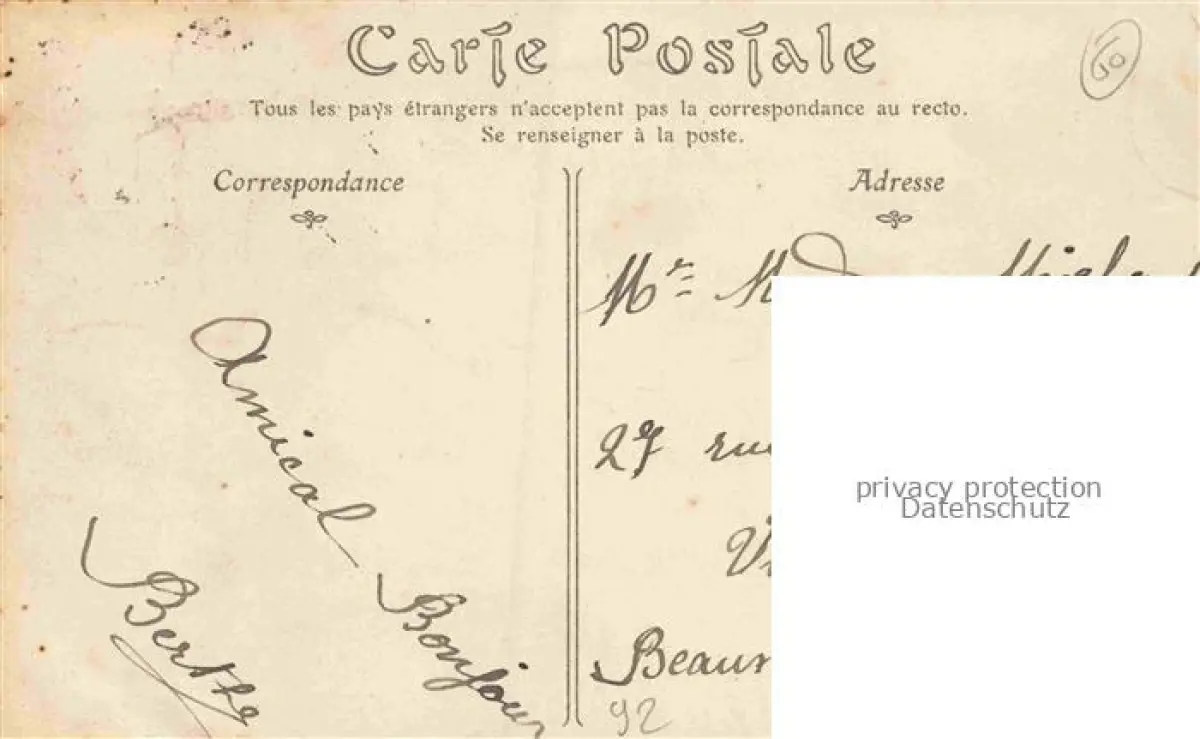 Carte Postale
60
Tous les pays étrangers n'acceptent pas la correspondance au recto.
Se renseigner à la poste.
Correspondance
Adresse
Amical Bonjour
Berthe
Mr M
27 rue
Beauv
92
privacy protection
Datenschutz